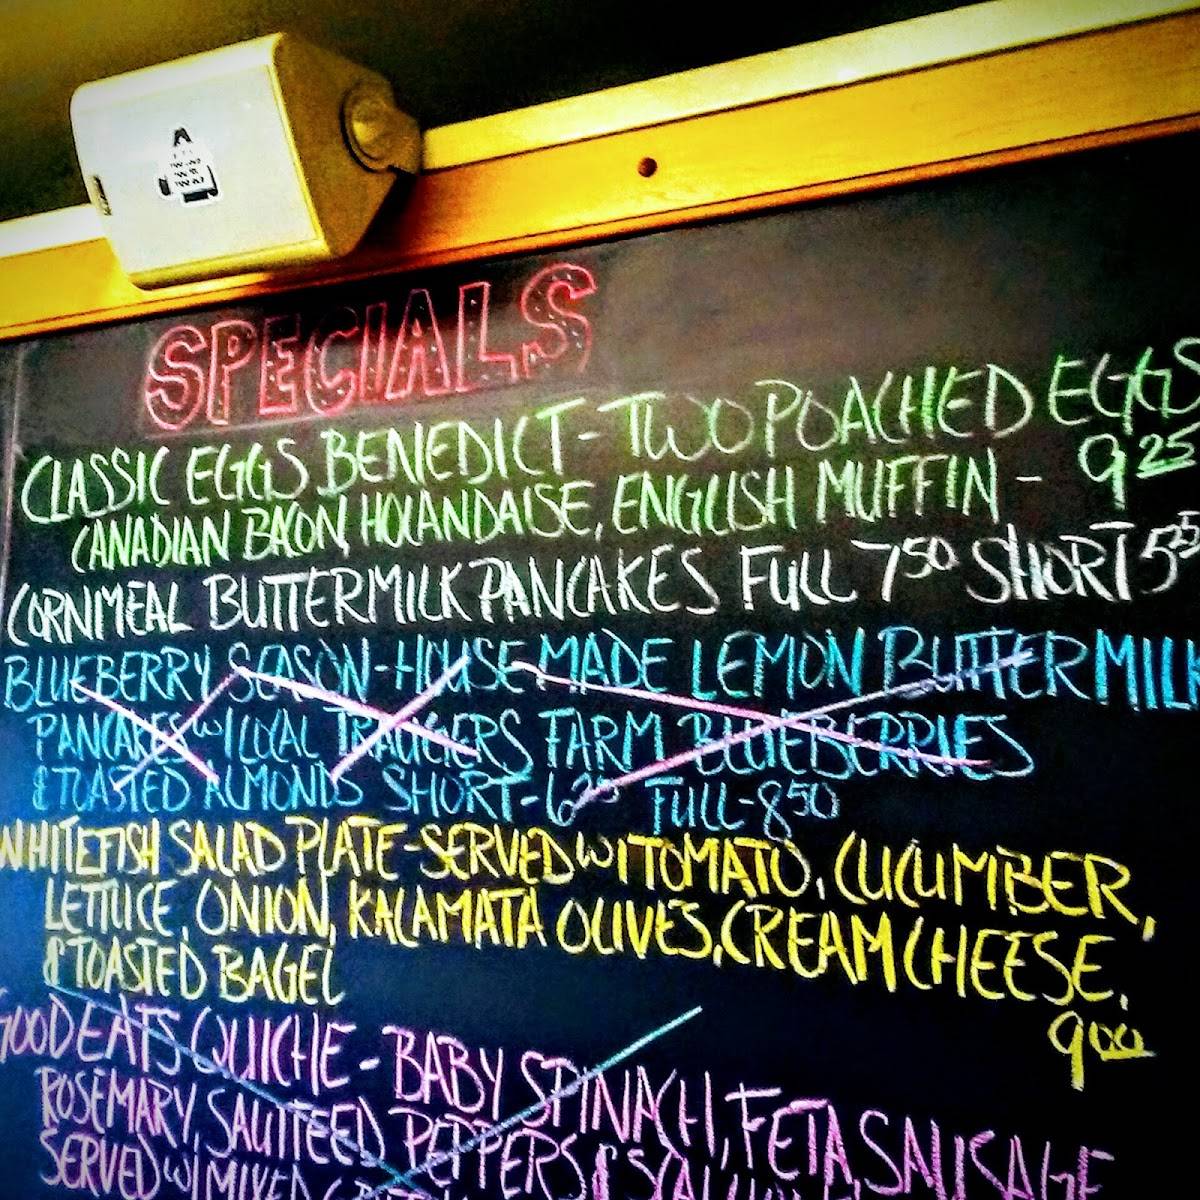 SPECIALS
CLASSIC EGGS BENEDICT - TWO POACHED EGGS
CANADIAN BACON, HOLANDAISE, ENGLISH MUFFIN - 9 25
CORNMEAL BUTTERMILK PANCAKES FULL 7 50 SHORT 5 25
BLUEBERRY SEASON - HOUSE MADE LEMON BUTTERMILK
PANCAKES W/ LOCAL TRAUGERS FARM BLUEBERRIES
& TOASTED ALMONDS SHORT - 6 25 FULL - 8 50
WHITEFISH SALAD PLATE - SERVED W/ TOMATO, CUCUMBER,
LETTUCE, ONION, KALAMATA OLIVES, CREAM CHEESE,
& TOASTED BAGEL
9 00
GOOD EATS QUICHE - BABY SPINACH, FETA, SAUSAGE
ROSEMARY, SAUTEED PEPPERS &
SERVED W/ MIXED